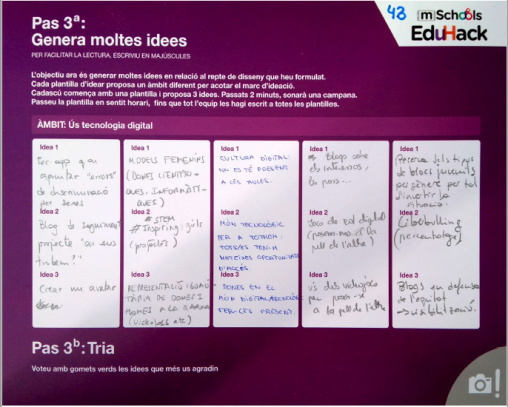 Pas 3ª:
Genera moltes idees
PER FACILITAR LA LECTURA, ESCRIVIU EN MAJÚSCULES
43
mSchools
EduHack
L'objectiu ara és generar moltes idees en relació al repte de disseny que heu formulat.
Cada plantilla d'idear proposa un àmbit diferent per acotar el marc d'ideació.
Cadascú comença amb una plantilla i proposa 3 idees. Passats 2 minuts, sonarà una campana.
Passeu la plantilla en sentit horari, fins que tot l'equip les hagi escrit a totes les plantilles.
ÀMBIT: Ús tecnologia digital
Idea 1
Fer app
apuntar "errors"
de discriminació
per sexes
Idea 2
Blog de seguiment
projecte "
Idea 3
Crear un avatar
Idea 1
MODELS FEMENINS
(DONES CIENTÍFI-
QUES, INFORMÀTI-
QUES)
Idea 2
# STEM
# Inspiring girls
(projectes)
Idea 3
REPRESENTACIÓ
DE DONES I
HOMES A LA
Idea 1
CULTURA DIGITAL:
NO ESTÀ PRESENT
A LES AULES.
Idea 2
MÓN TECNOLÒGIC
PER A TOTHOM:
TOTHOM TENIM
MATEIXES OPORTUNITATS
D'ACCÉS
Idea 3
DONES EN EL
MÓN DIGITAL
Idea 1
* Blogs sobre
els interessos,
Idea 2
Joc de rol digital
(posem-nos a la
pell de l'altre)
Idea 3
ús dels videojocs
per posar-se
a la pell de l'altre
Idea 1
Recerca dels tipus
de blocs juvenils
per gènere per tal
Idea 2
Ciberbulling
(percentatge)
Idea 3
Blogs en defensa
de l'equitat
→ visibilització.
Pas 3ᵇ: Tria
Voteu amb gomets verds les idees que més us agradin